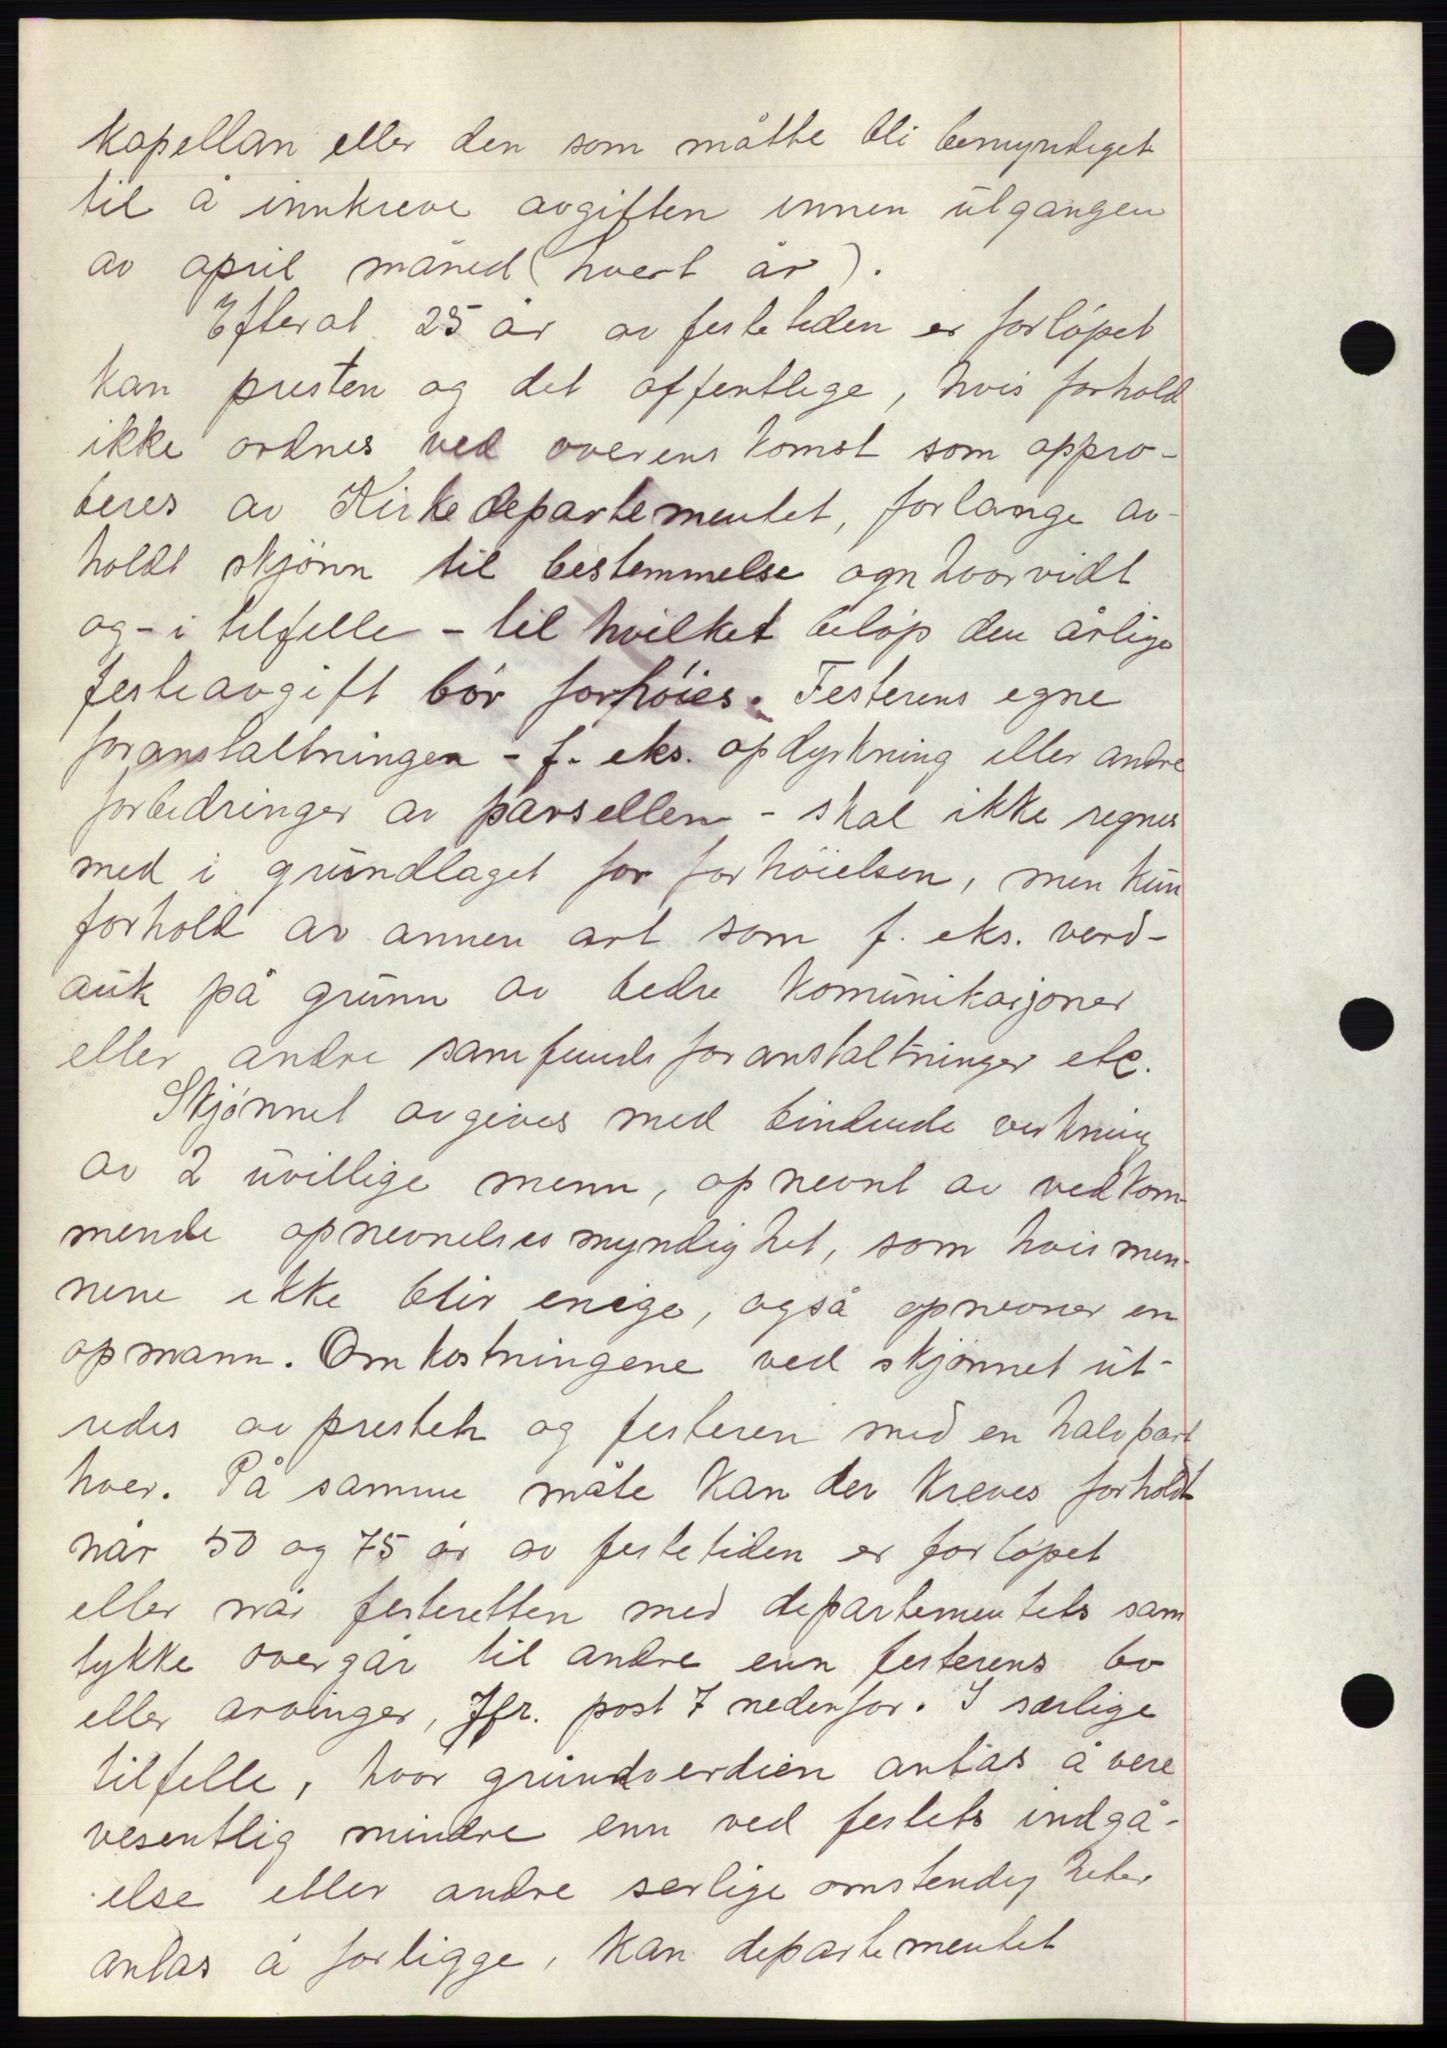 kapellan eller den som måtte bli bemyndiget
til å innkreve avgiften innen utgangen
av april måned (hvert år).
Efterat 25 år av festetiden er forløpet
kan presten og det offentlige, hvis forhold
ikke ordnes ved overenskomst som appro-
beres av Kirkedepartementet, forlange av-
holdt skjønn til bestemmelse om hvorvidt
og - i tilfelle - til hvilket beløp den årlige
festeavgift bør forhøies. Festerens egne
foranstaltninger - f. eks. opdyrkning eller andre
forbedringer av parsellen - skal ikke regnes
med i grundlaget for forhøielsen, men kun
forhold av annen art som f. eks. verd-
auk på grunn av bedre komunikasjoner
eller andre samfundsforanstaltninger etc.
Skjønnet avgives med bindende verkning
av 2 uvillige menn, opnevnt av vedkom-
mende opnevnelsesmyndighet, som hvis men-
nene ikke blir enige, også opnevner en
opmann. Omkostningene ved skjønnet ut-
redes av presten og festeren med en halvpart
hver. På samme måte kan der kreves forholdt
når 50 og 75 år av festetiden er forløpet
eller når festeretten med departementets sam
tykke overgår til andre enn festerens bo
eller arvinger, Jfr. post 7 nedenfor. I særlige
tilfelle, hvor grundverdien antas å vere
vesentlig mindre enn ved festets indgå-
else eller andre serlige omstendigheter
antas å forligge, kan departementet